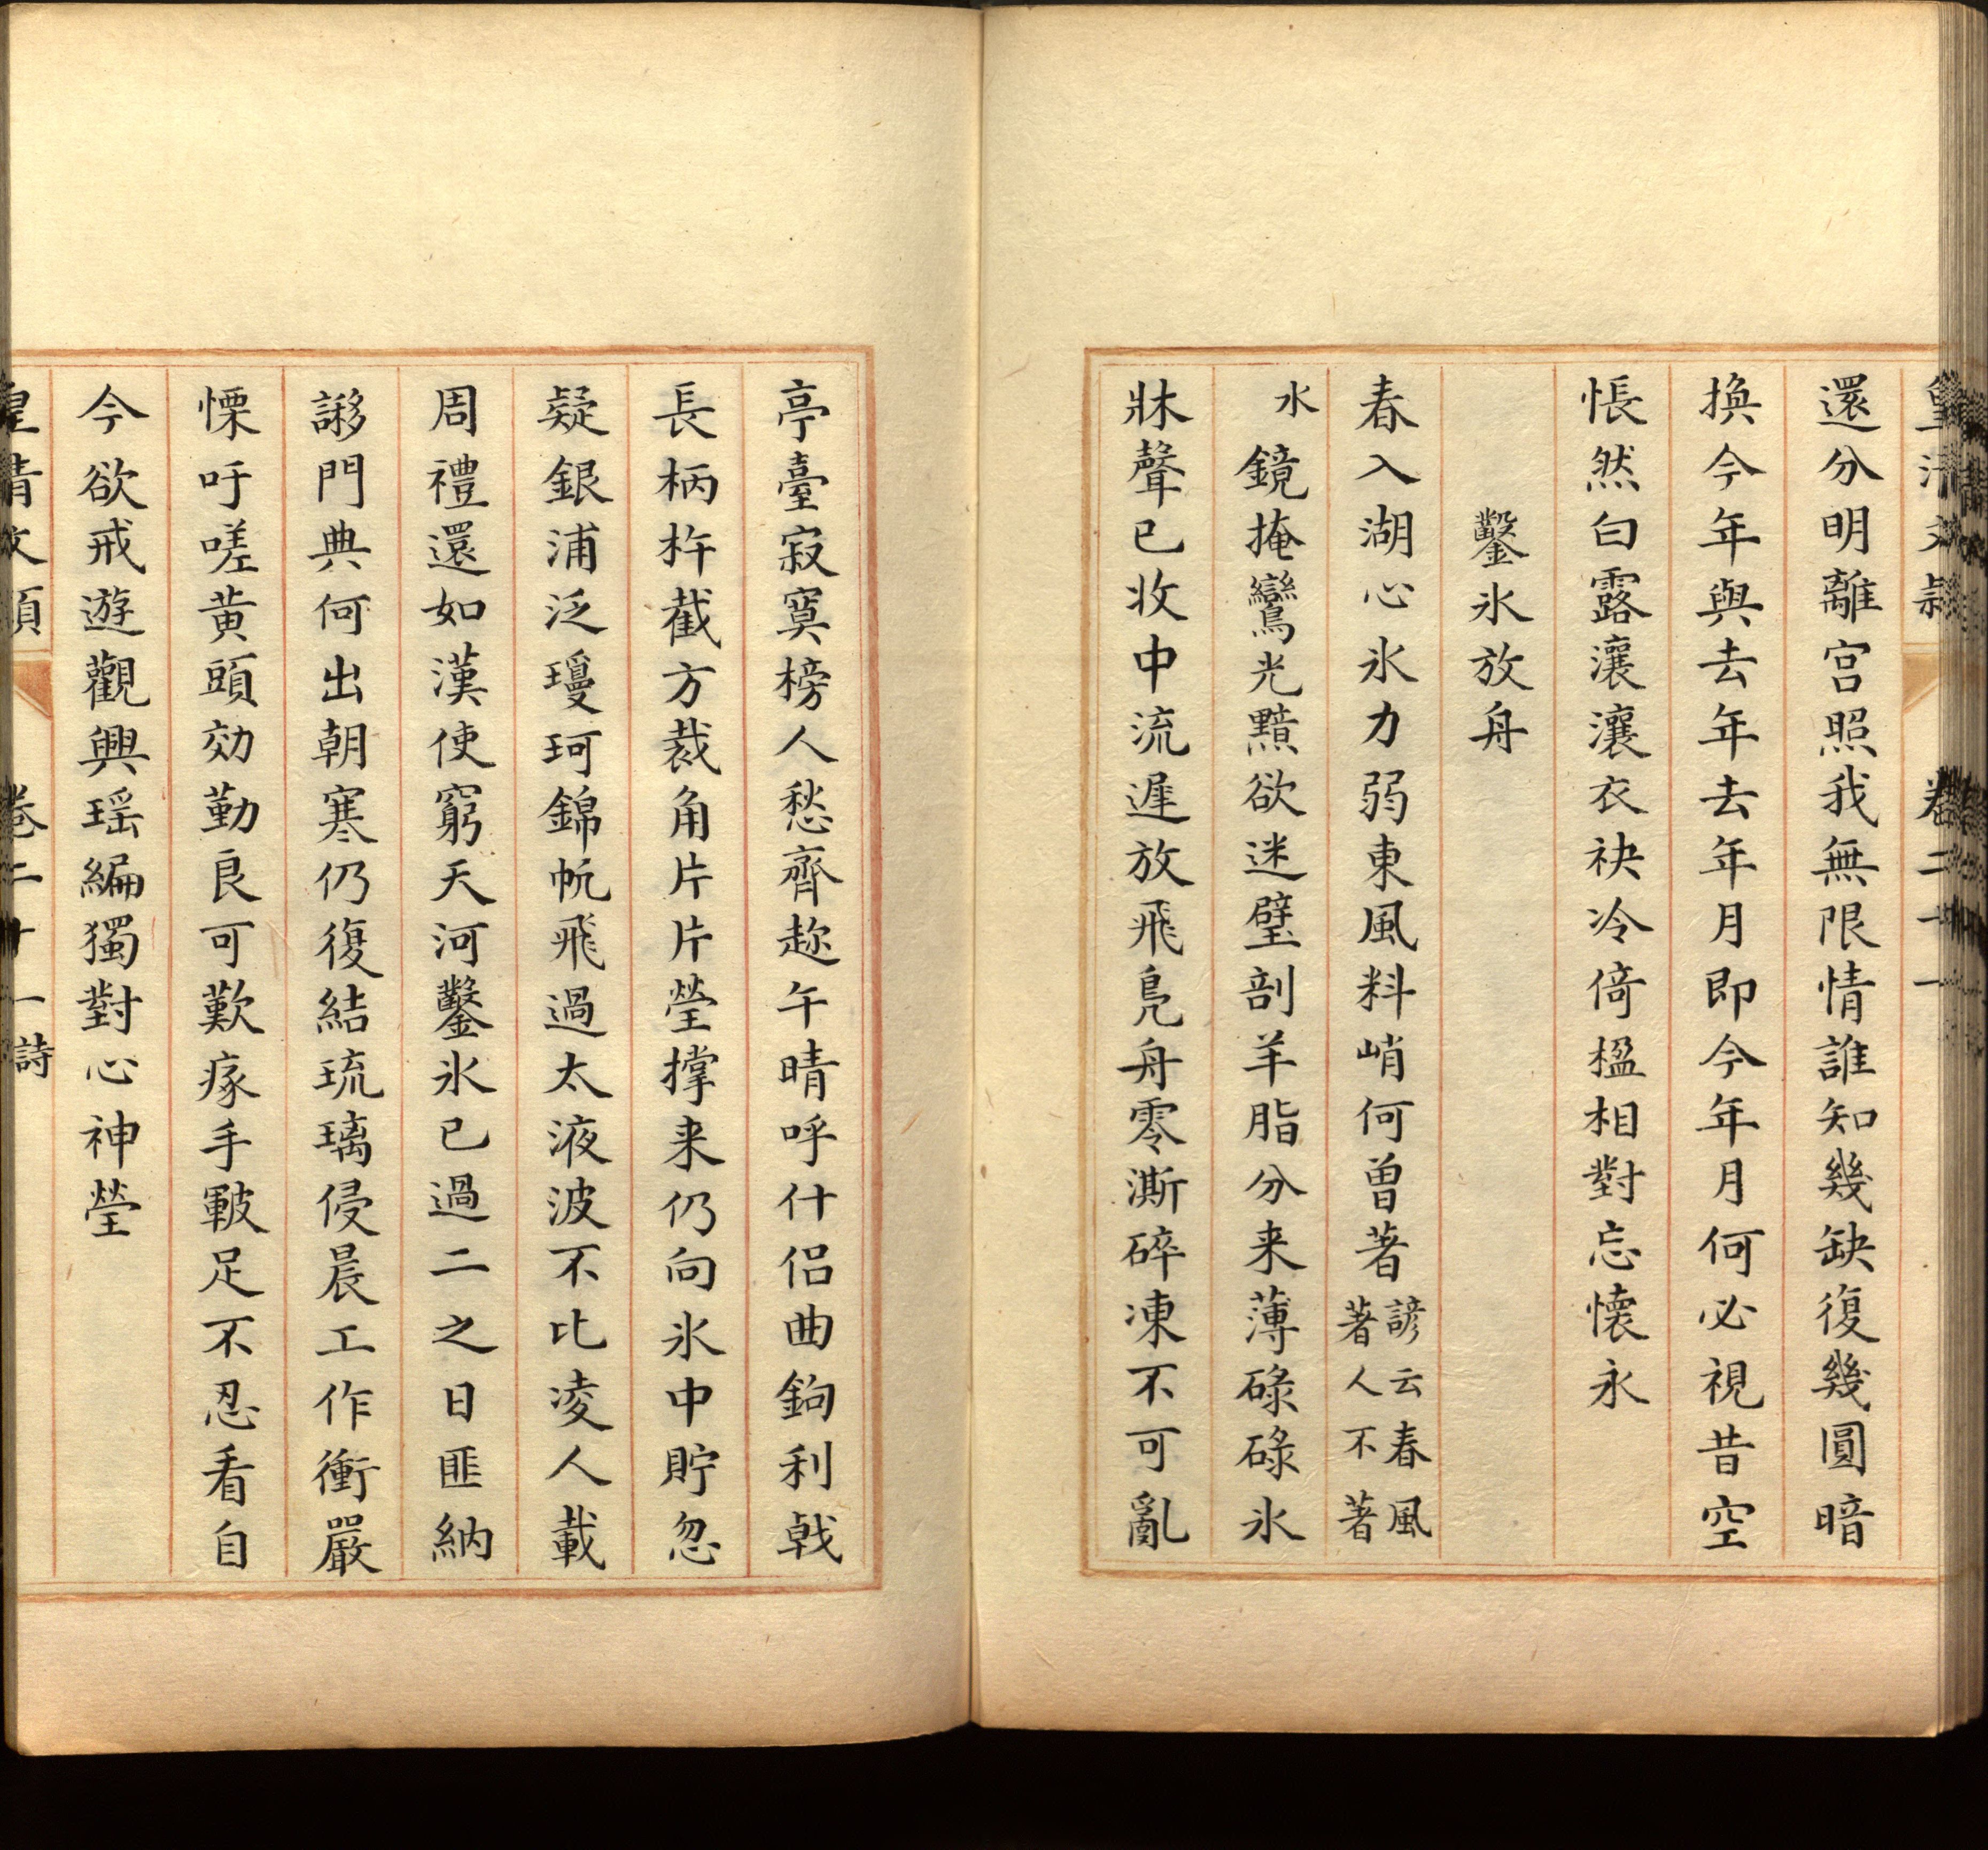 還分明離宮照我無限情誰知幾缺復幾圓暗
換今年與去年去年月即今年月何必視昔空
悵然白露瀼瀼衣袂冷倚楹相對忘懷永
鑿氷放舟
春入湖心氷力弱東風料峭何曽著諺云春風著人不著
水鏡掩鸞光黯欲迷璧剖羊脂分来薄碌碌氷
牀聲已收中流遲放飛鳧舟零澌碎凍不可亂
亭臺寂寞榜人愁齊趂午晴呼什侣曲鉤利戟
長柄杵截方裁角片片瑩撐来仍向氷中貯忽
疑銀浦泛瓊珂錦帆飛過太液波不比凌人載
周禮還如漢使窮天河鑿氷已過二之日匪納
謻門典何出朝寒仍復結琉璃侵晨工作衝嚴
慄吁嗟黄頭効勤良可歎瘃手皸足不忍看自
今欲戒遊觀興瑶編獨對心神瑩
皇清文穎 卷二十一 詩